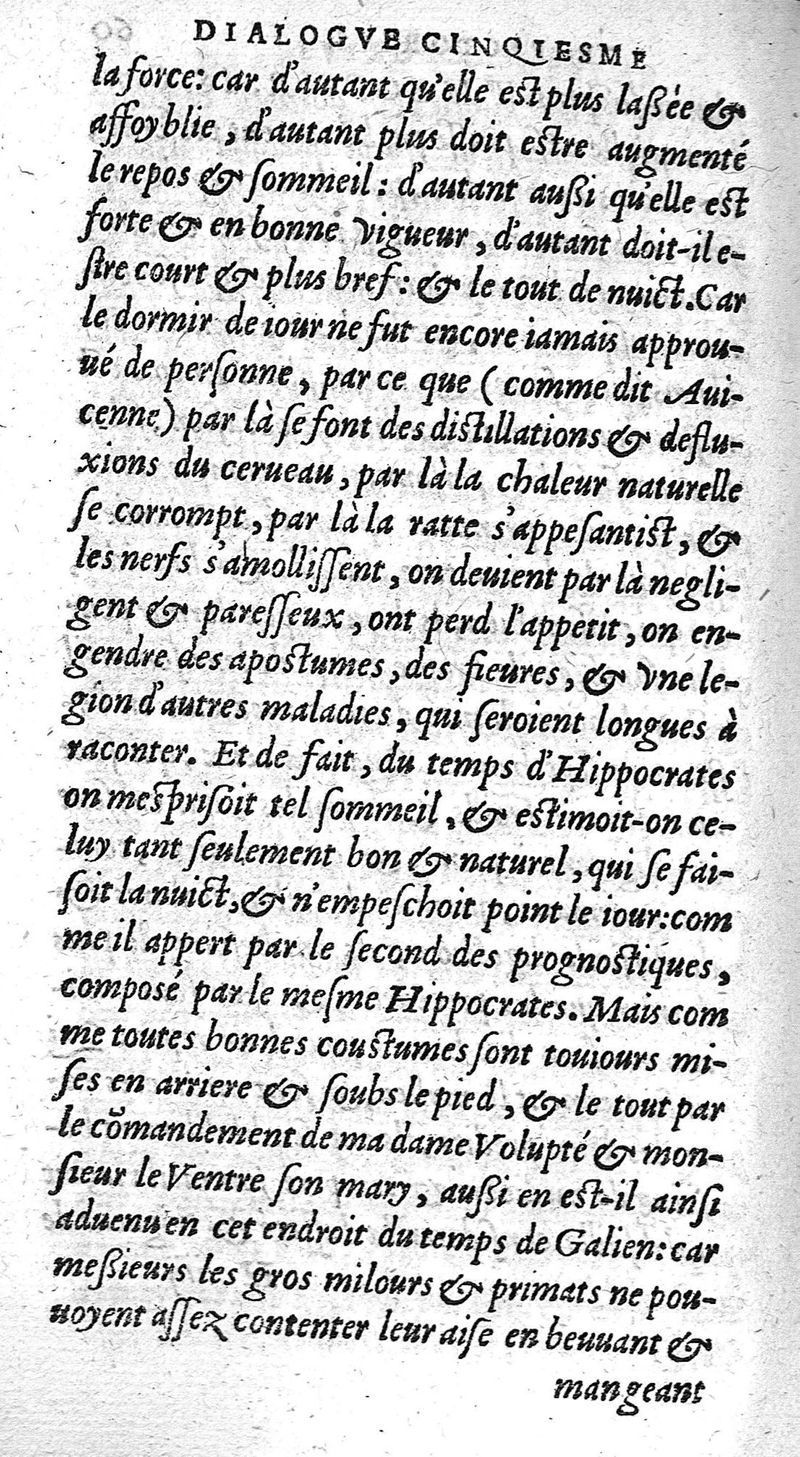 DIALOGVE CINQIESME
la force: car d'autant qu'elle est plus laßée &
affoyblie, d'autant plus doit estre augmenté
le repos & ſommeil: d'autant außi qu'elle est
forte & en bonne vigueur, d'autant doit-il e-
ſtre court & plus bref: & le tout de nuict. Car
le dormir de iour ne fut encore iamais approu-
ué de perſonne, par ce que (comme dit Aui-
cenne) par là ſe font des distillations & deflu-
xions du cerueau, par là la chaleur naturelle
ſe corrompt, par là la ratte s'appeſantist, &
les nerfs s'amolliſſent, on deuient par là negli-
gent & pareſſeux, ont perd l'appetit, on en-
gendre des apostumes, des fieures, & vne le-
gion d'autres maladies, qui ſeroient longues à
raconter. Et de fait, du temps d'Hippocrates
on mespriſoit tel ſommeil, & estimoit-on ce-
luy tant ſeulement bon & naturel, qui ſe fai-
ſoit la nuict, & n'empeſchoit point le iour: com
me il appert par le ſecond des prognostiques,
composé par le meſme Hippocrates. Mais com
me toutes bonnes coustumes ſont touiours mi-
ſes en arriere & ſoubs le pied, & le tout par
le cõmandement de ma dame Volupté & mon-
ſieur le Ventre ſon mary, außi en est-il ainſi
aduenu en cet endroit du temps de Galien: car
meßieurs les gros milours & primats ne pou-
uoyent aſſez contenter leur aiſe en beuuant &
mangeant